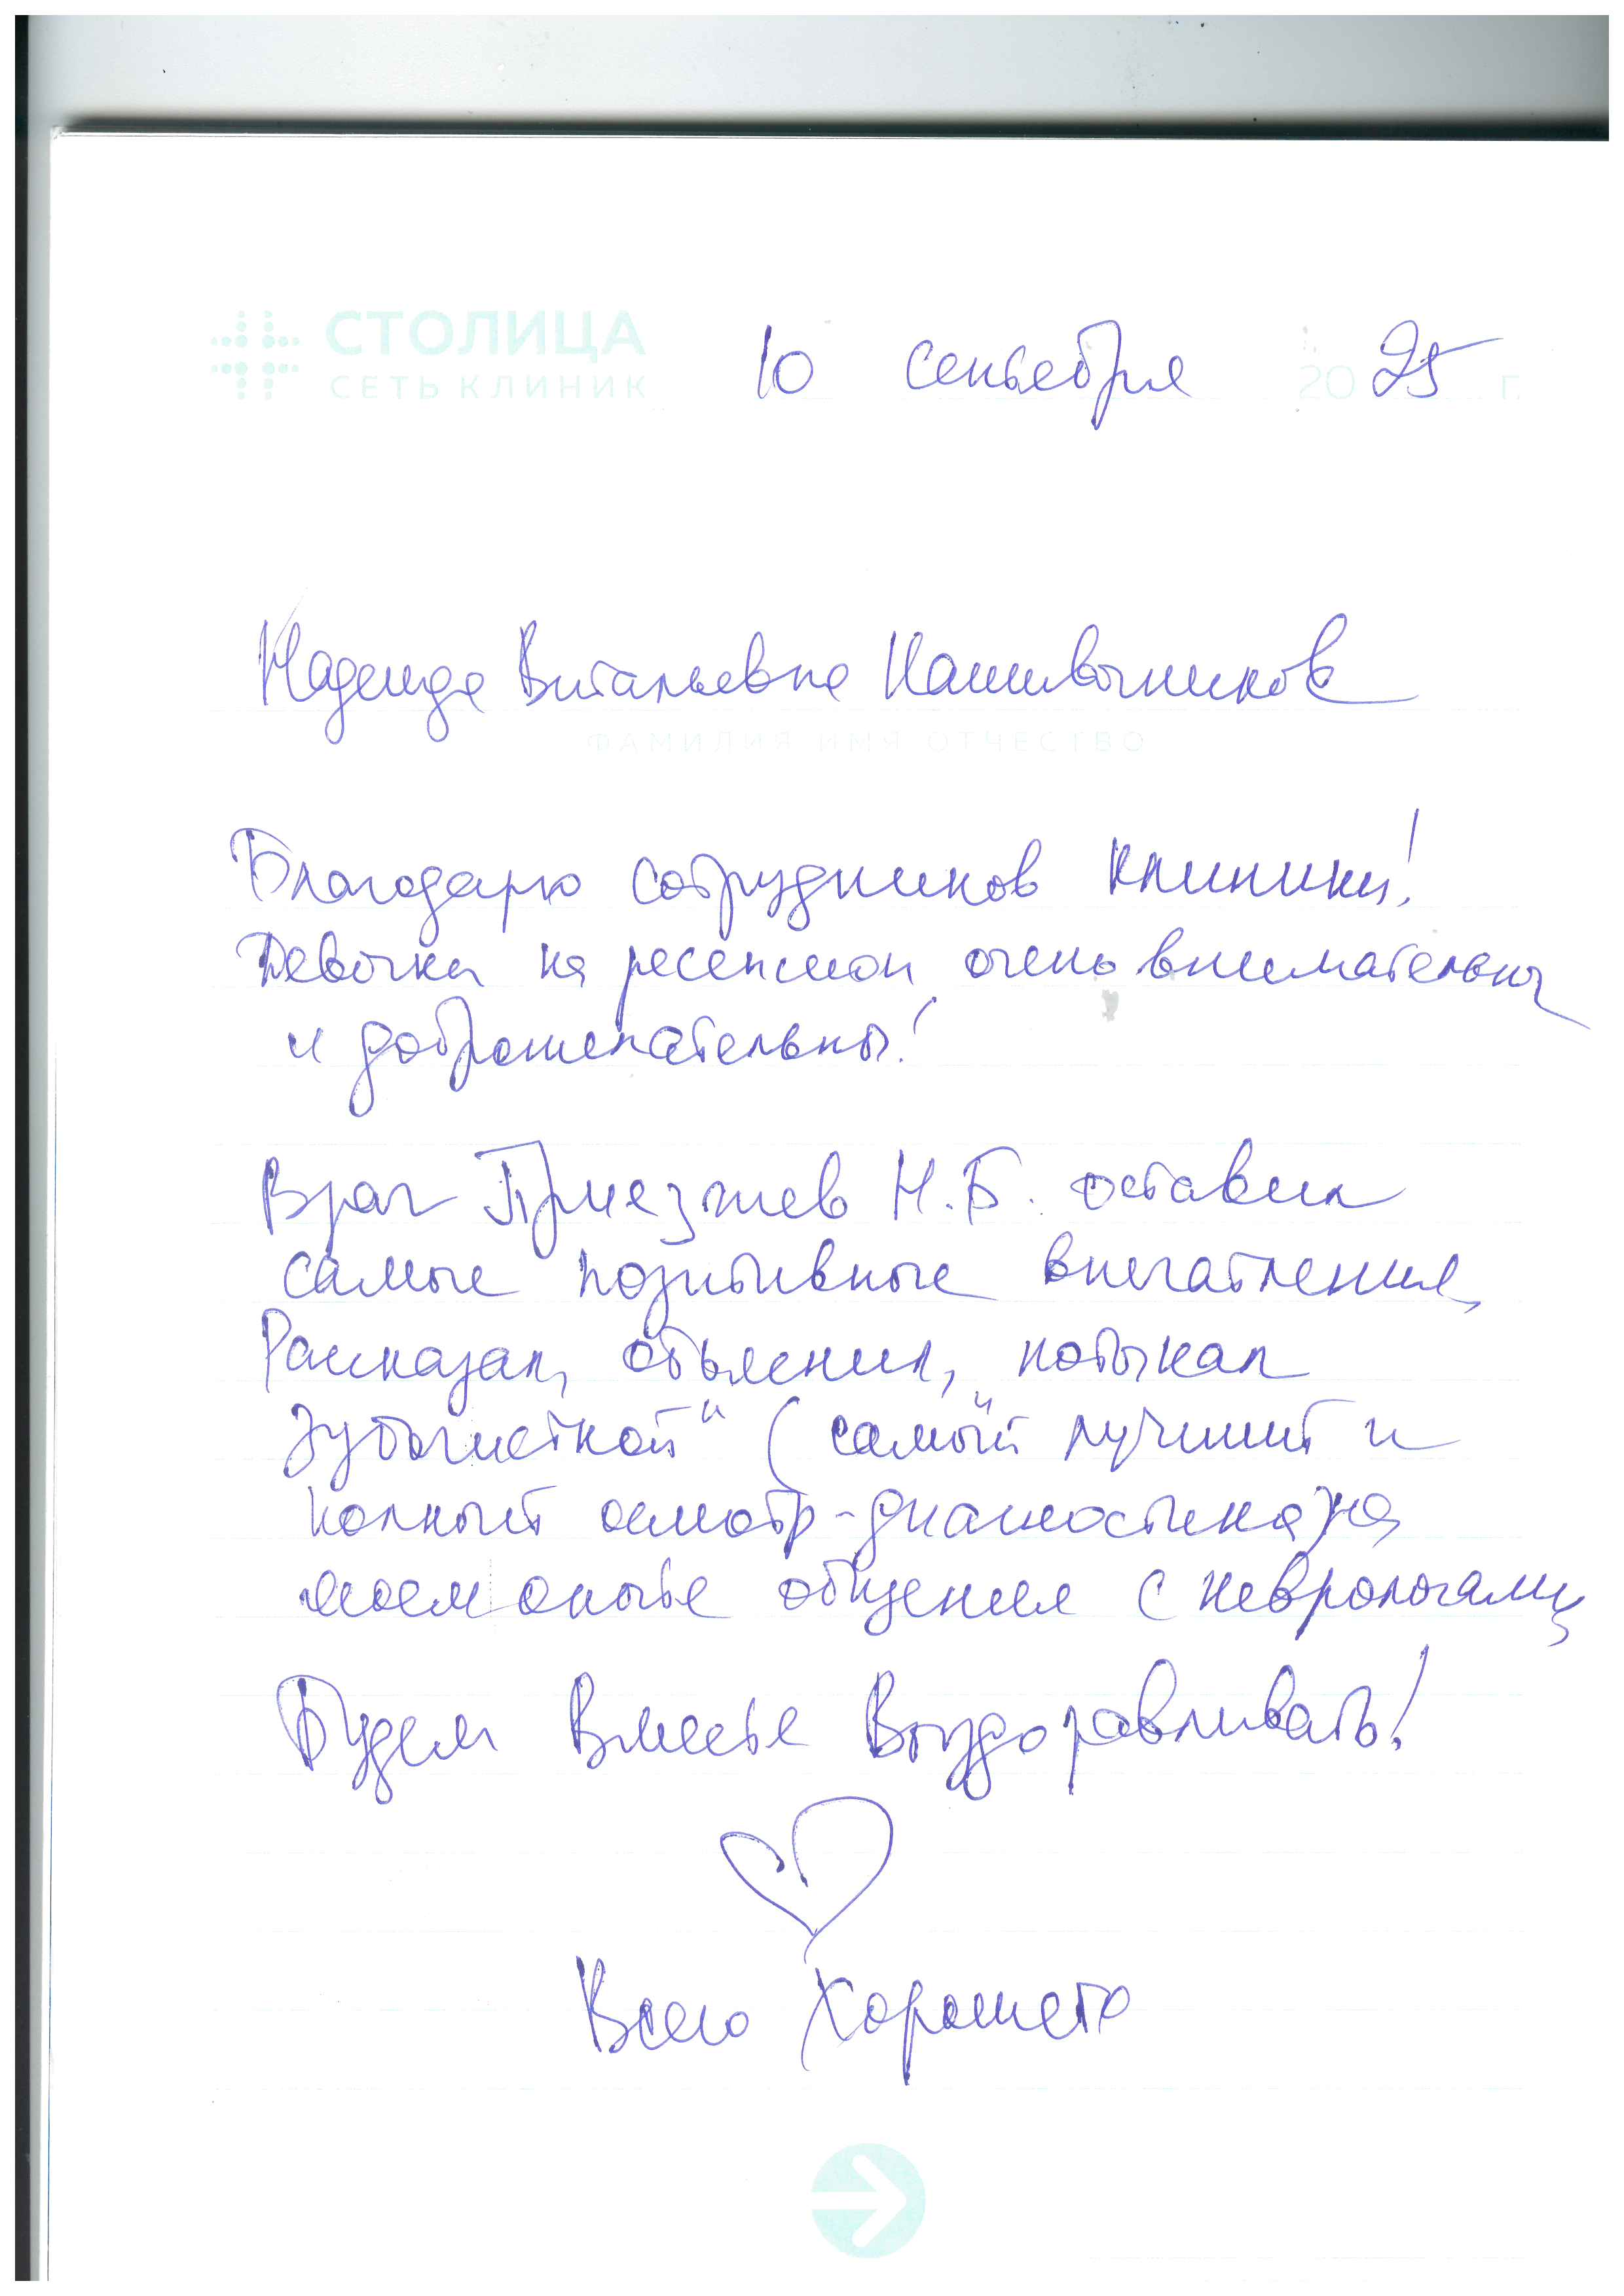 СТОЛИЦА
СЕТЬ КЛИНИК
10 сентября 2025 г.
Надежда Витальевна
ФАМИЛИЯ ИМЯ ОТЧЕСТВО
Благодарю сотрудников клиники!
Девочки на ресепшион очень внимательны
и доброжелательны!
Врач Приезжев Н.Б. оставил
самые позитивные впечатления,
Рассказал, объяснил, "потыкал
зубочисткой" (самый лучший и
полный осмотр-диагностика) на
моем опыте общения с неврологами
Будем Вместе Выздоравливать!
Всего Хорошего